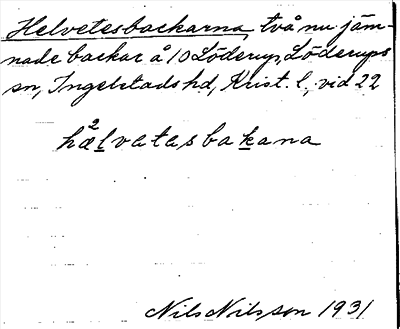 Helvetesbackarna, två nu jäm-
nade backar å 10 Löderup, Löderups
sn, Ingelstads hd, Krist. l., vid 22
hæ²lvatasbakana
Nils Nilsson 1931